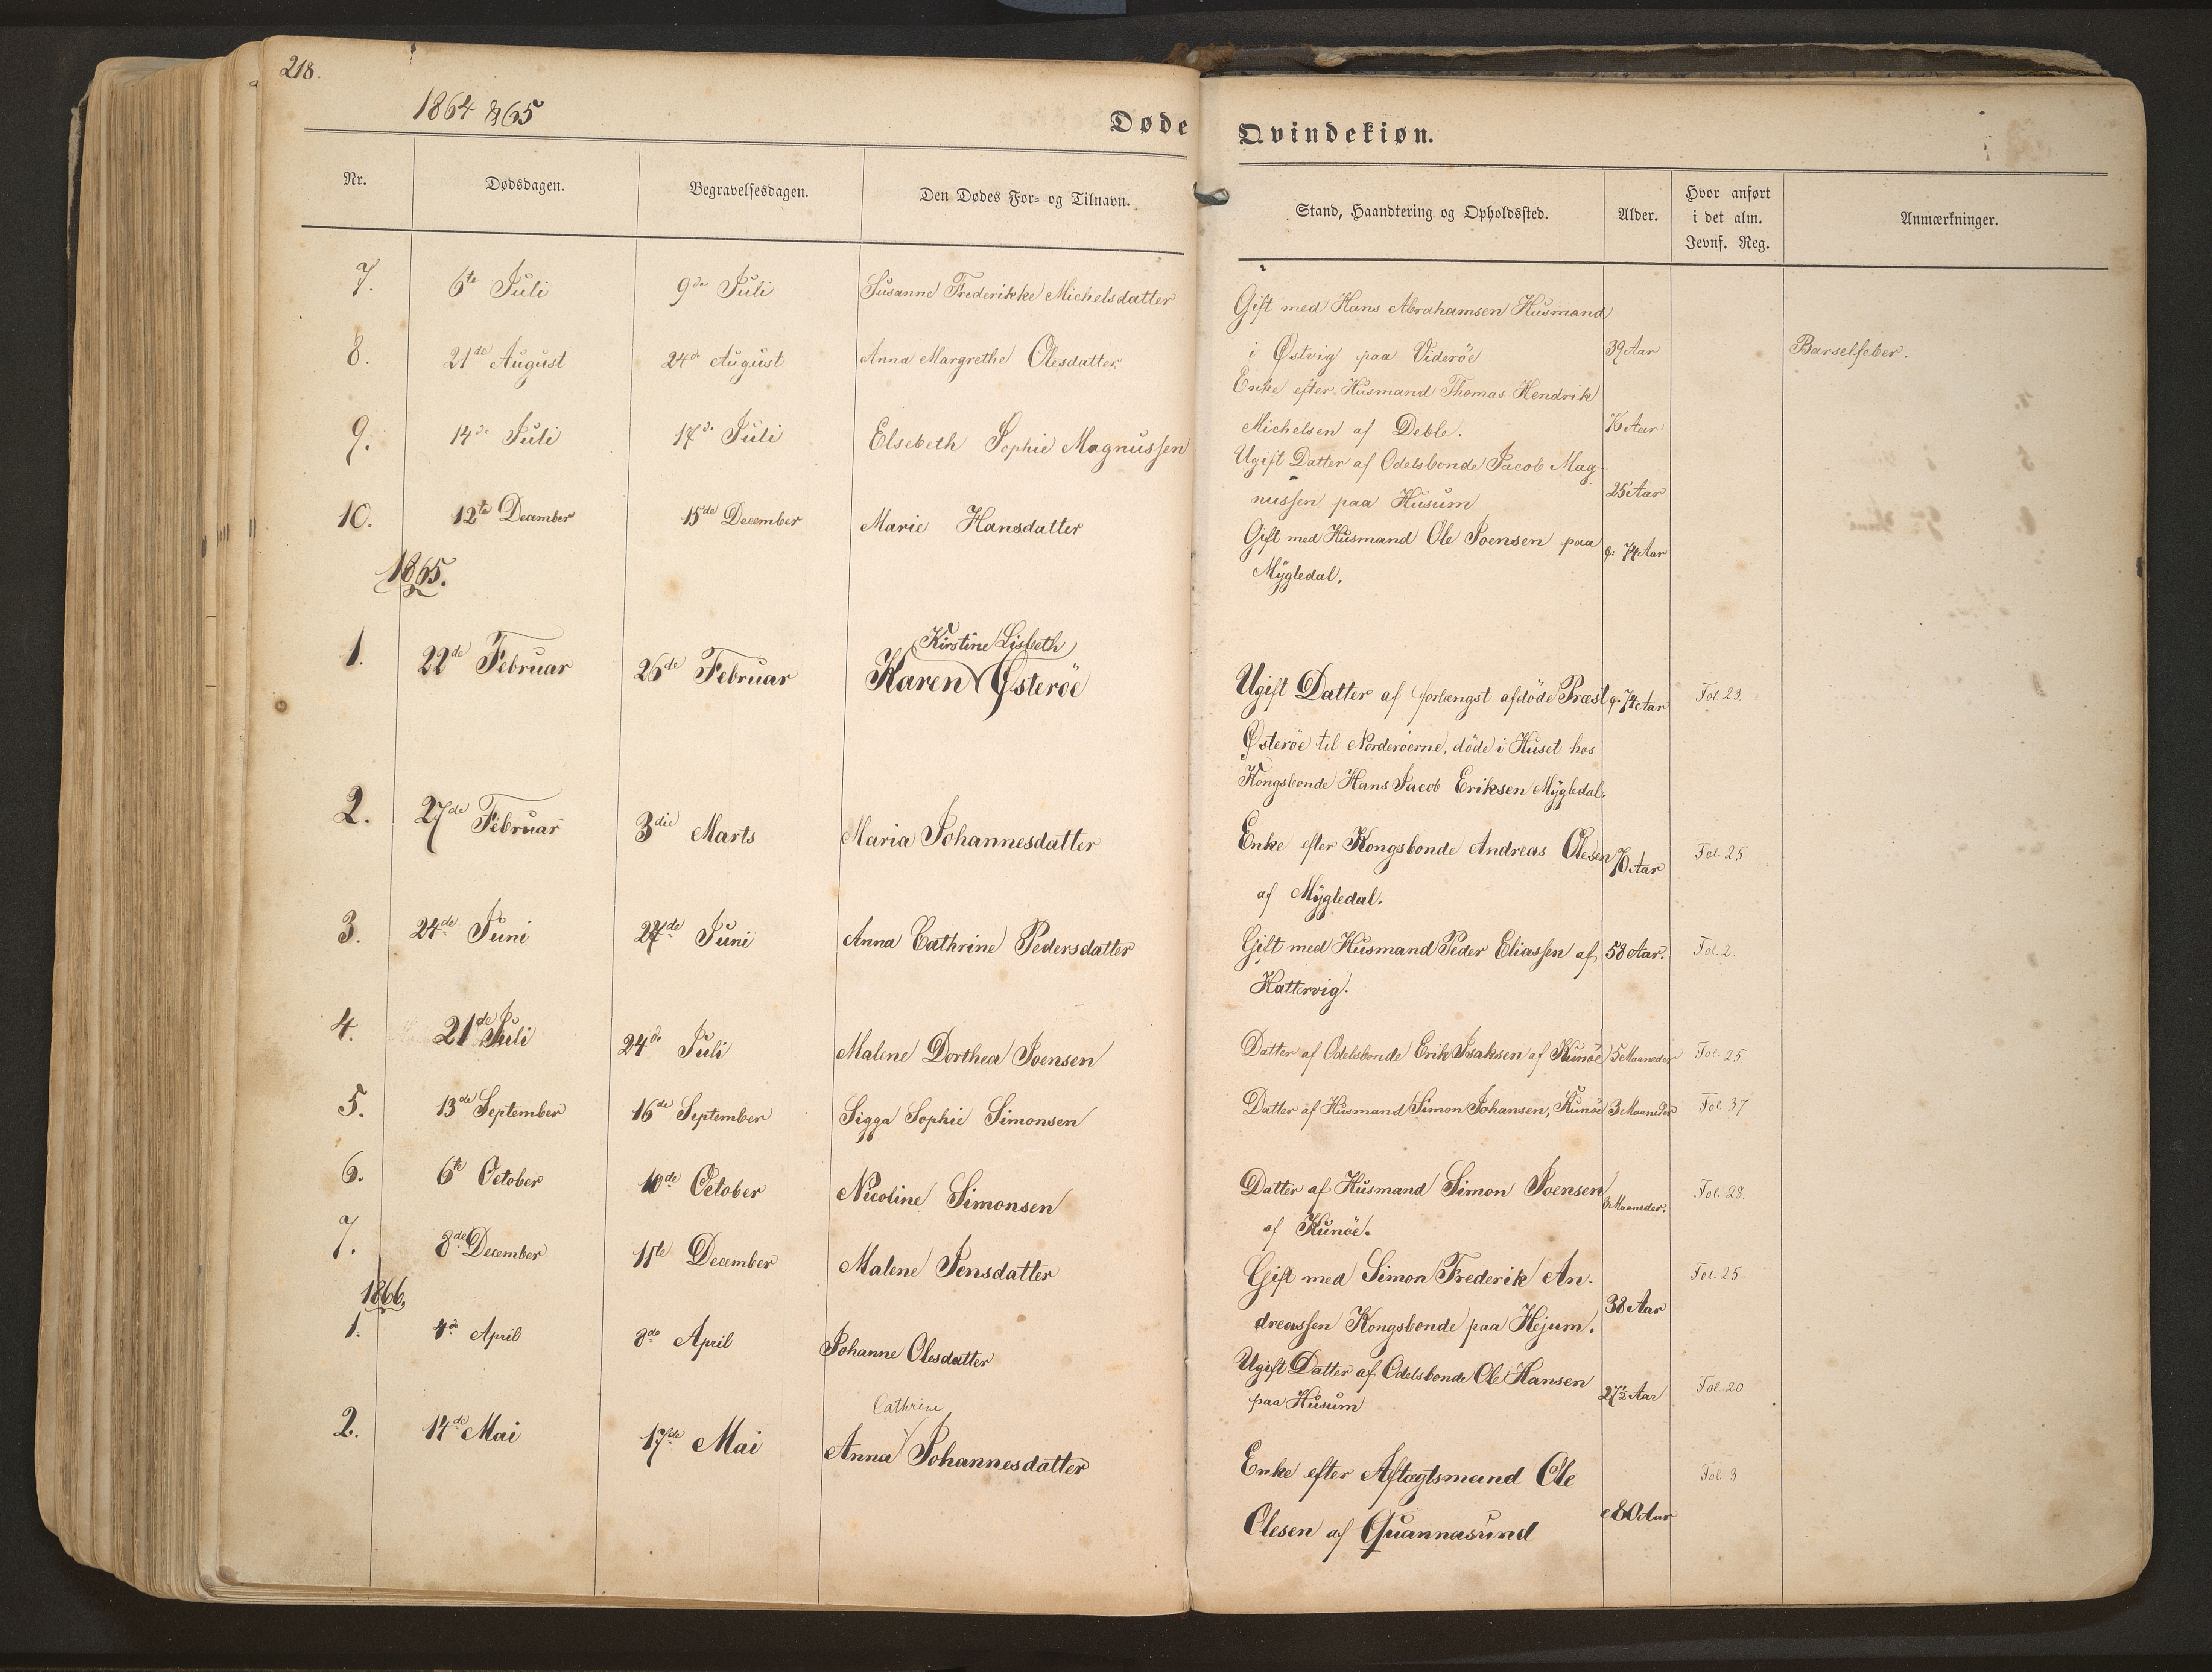 218.
1864 & 65
Døde Qvindekiøn.
Nr. Dødsdagen. Begravelsesdagen. Den Dødes For- og Tilnavn. Stand, Haandtering og Opholdssted. Alder. Hvor anført i det alm. Jevnf. Reg. Anmærkninger.
7. 6te Juli 9de Juli Susanne Frederikke Michelsdatter Gift med Hans Abrahamsen Husmand
i Østvig paa Videröe 39 Aar Barselfeber.
8. 21de August 24de August Anna Margrethe Olesdatter Enke efter Husmand Thomas Hendrik
Michelsen af Deble. 76 Aar
9. 14de Juli 17de Juli Elsebeth Sophie Magnussen Ugift Datter af Odelsbonde Jacob Mag-
nussen paa Husum 25 Aar
10. 12te December 15de December Marie Hansdatter Gift med Husmand Ole Joensen paa 74 Aar
Mÿgledal.
1865.
Kirstine Lisbeth
1. 22de Februar 26de Februar Karen Østeröe Ugift Datter af forlængst afdöde Præst 74 Aar Fol. 23.
Østeröe til Norderöerne, döde i Huset hos
Kongsbonde Hans Jacob Eriksen Mÿgledal.
2. 27de Februar 3die Marts Maria Johannesdatter Enke efter Kongsbonde Andreas Olesen 76 Aar Fol. 25
af Mÿgledal.
3. 24de Juni 27de Juni Anna Cathrine Pedersdatter Gift med Husmand Peder Eliassen af 58 Aar. Fol. 2.
Hattervig.
4. 21de Juli 24de Juli Malene Dorthea Joensen Datter af Odelsbonde Erik Isaksen af Kunöe 5 Maaneder Fol. 25
5. 13de September 16de September Sigga Sophie Simonsen Datter af Husmand Simon Johansen, Kunöe 3 Maaneder Fol. 37
6. 6te October 10de October Nicoline Simonsen Datter af Husmand Simon Joensen 3 Maaneder. Fol. 28.
af Kunöe.
7. 8de December 11te December Malene Jensdatter Gift med Simon Frederik An- Fol. 25
dreassen Kongsbonde paa Hejum. 38 Aar
1866.
1. 4de April 8de April Johanne Olesdatter Ugift Datter af Odelsbonde Ole Hansen Fol. 20
paa Husum 27½ Aar
Cathrine
2. 14de Mai 17de Mai Anna Johannesdatter Enke efter Aftægtsmand Ole Fol. 3
Olesen af Quannasund c 80 Aar